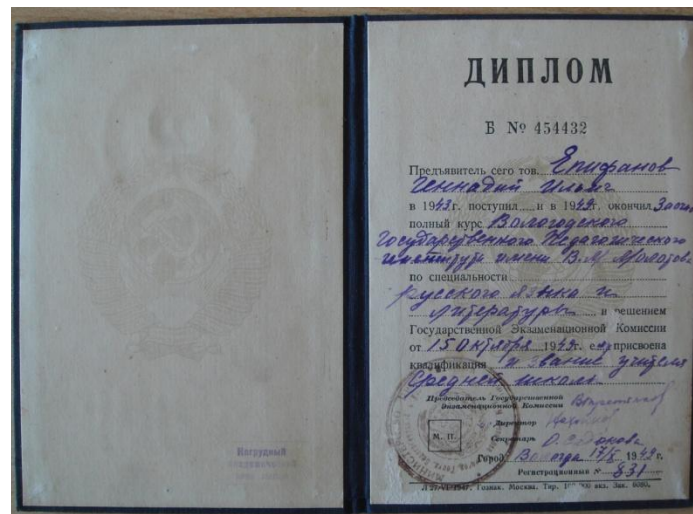 ДИПЛОМ
Б № 454432
Предъявитель сего тов. Епифанов
Геннадий Ильич
в 1943г. поступил и в 1949г. окончил Заочн
полный курс Вологодского
Государственного Педагогического
института имени В.М Молотова
по специальности
русского языка и
литературы и решением
Государственной Экзаменационной Комиссии
от 15 Октября 1949г. ему присвоена
квалификация и звание учителя
Средней школы
Председатель Государственной
Экзаменационной Комиссии
Директор
М. П.
Секретарь
Город Вологда 17/X 1949г.
Регистрационный № 831
Нагрудный
1947. Гознак. Москва. Тир. экз. Зак. 6080.